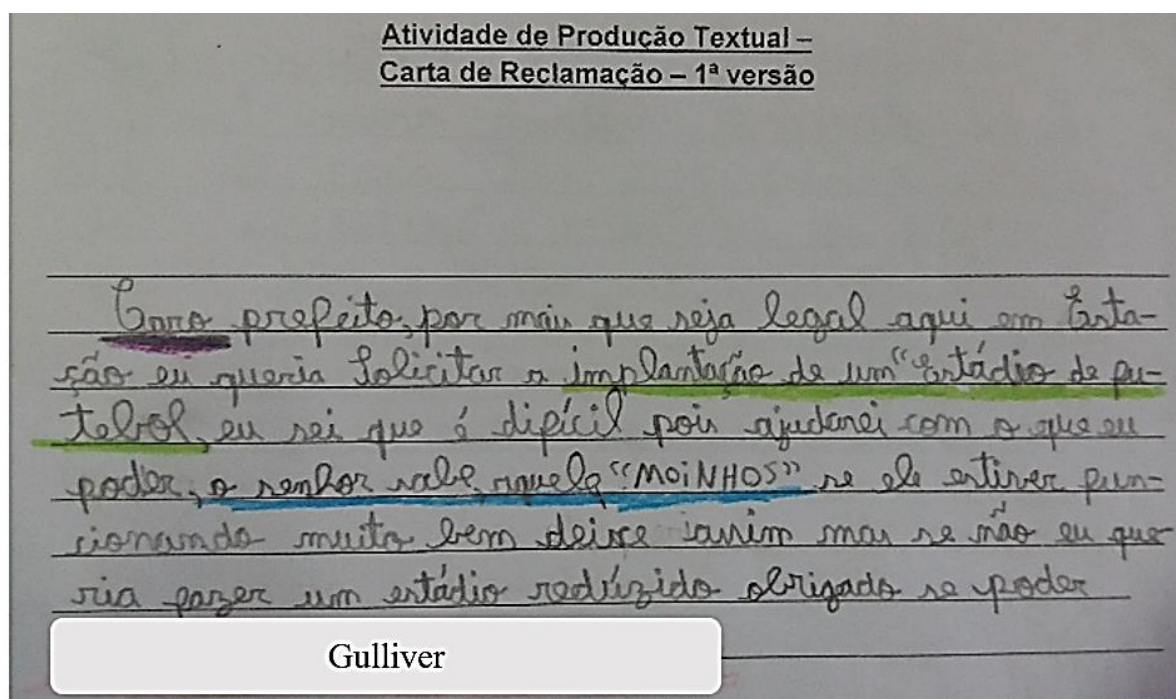 Atividade de Produção Textual –
Carta de Reclamação – 1ª versão
Caro prefeito, por mais que seja legal aqui em Esta-
ção eu queria Solicitar a implantação de um "estádio de fu-
tebol, eu sei que é difícil pois ajudarei com o que eu
poder, o senhor sabe, aquele "MOiNHOS" se ele estiver fun-
cionando muito bem deixe assim mas se não eu que-
ria fazer um estádio redúzido obrigado se poder
Gulliver